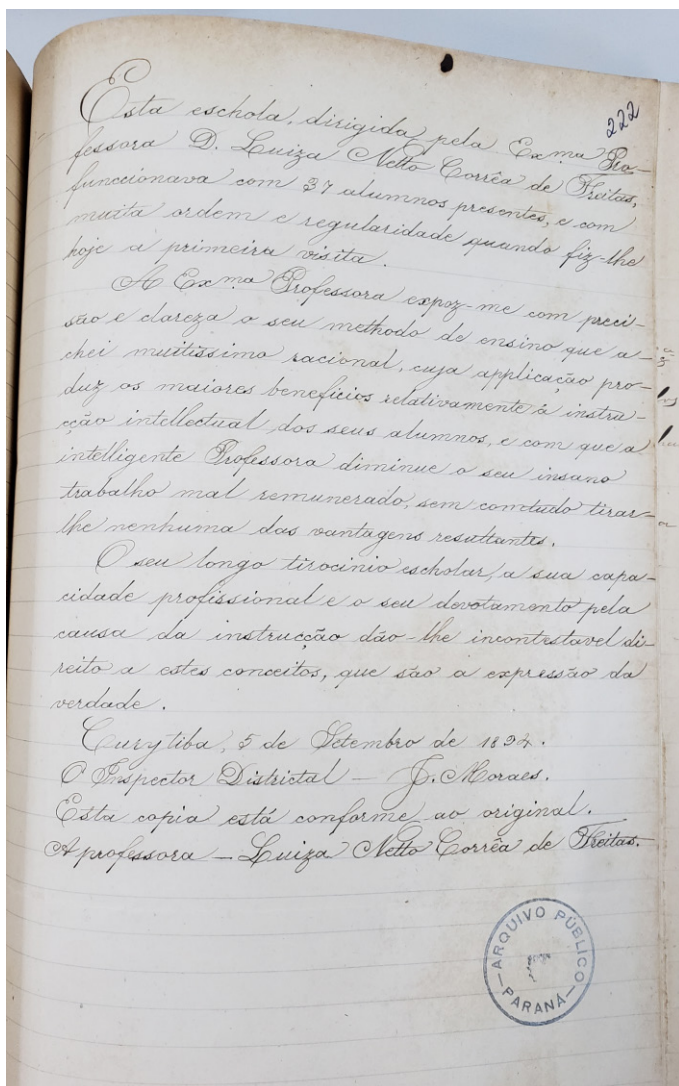 222
Esta eschola, dirigida pela Exma Pro-
fessora D. Luiza Netto Corrêa de Freitas,
funccionava com 37 alumnos presentes, e com
muita ordem e regularidade quando fiz-lhe
hoje a primeira visita.
A Exma Professora expoz-me com preci-
são e clareza o seu methodo de ensino que a-
chei muitissimo racional, cuja applicação pro-
duz os maiores beneficios relativamente á instru-
cção intellectual dos seus alumnos, e com que a
intelligente Professora diminue o seu insano
trabalho mal remunerado, sem comtudo tirar-
lhe nenhuma das vantagens resultantes.
O seu longo tirocinio escholar, a sua capa-
cidade profissional e o seu devotamento pela
causa da instrucção dão-lhe incontestavel di-
reito a estes conceitos, que são a expressão da
verdade.
Curytiba, 5 de Setembro de 1894.
O Inspector Districtal — J. Moraes.
Esta copia está conforme ao original.
A professora — Luiza Netto Corrêa de Freitas.
ARQUIVO PÚBLICO
PARANÁ